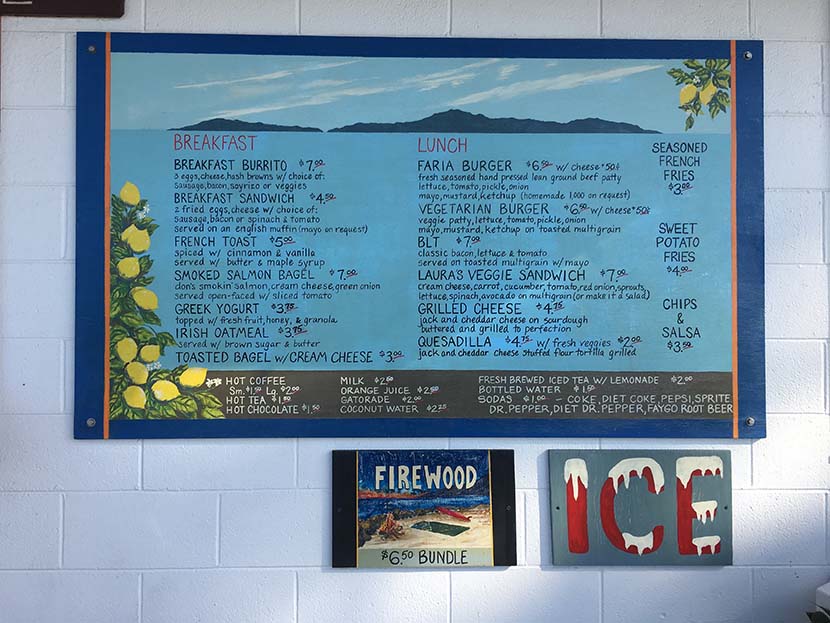 BREAKFAST
BREAKFAST BURRITO $7.00
3 eggs, cheese, hash browns w/ choice of:
sausage, bacon, soyrizo or veggies
BREAKFAST SANDWICH $4.50
2 fried eggs, cheese w/ choice of:
sausage, bacon or spinach & tomato
served on an english muffin (mayo on request)
FRENCH TOAST $5.00
spiced w/ cinnamon & vanilla
served w/ butter & maple syrup
SMOKED SALMON BAGEL $7.00
don's smokin' salmon, cream cheese, green onion
served open-faced w/ sliced tomato
GREEK YOGURT $3.75
topped w/ fresh fruit, honey, & granola
IRISH OATMEAL $3.75
served w/ brown sugar & butter
TOASTED BAGEL w/ CREAM CHEESE $3.00
LUNCH
FARIA BURGER $6.50 w/ cheese + 50¢
fresh seasoned hand pressed lean ground beef patty
lettuce, tomato, pickle, onion
mayo, mustard, ketchup (homemade 1,000 on request)
VEGETARIAN BURGER $6.50 w/ cheese + 50¢
veggie patty, lettuce, tomato, pickle, onion
mayo, mustard, ketchup on toasted multigrain
BLT $7.00
classic bacon, lettuce & tomato
served on toasted multigrain w/ mayo
LAURA'S VEGGIE SANDWICH $7.00
cream cheese, carrot, cucumber, tomato, red onion, sprouts,
lettuce, spinach, avocado on multigrain (or make it a salad)
GRILLED CHEESE $4.75
jack and cheddar cheese on sourdough
buttered and grilled to perfection
QUESADILLA $4.75 w/ fresh veggies $2.00
jack and cheddar cheese stuffed flour tortilla grilled
SEASONED
FRENCH
FRIES
$3.00
SWEET
POTATO
FRIES
$4.00
CHIPS
&
SALSA
$3.50
HOT COFFEE
Sm. $1.50 Lg. $2.00
HOT TEA $1.50
HOT CHOCOLATE $1.50
MILK $2.50
ORANGE JUICE $2.50
GATORADE $2.00
COCONUT WATER $2.75
FRESH BREWED ICED TEA W/ LEMONADE $2.00
BOTTLED WATER $1.50
SODAS $1.00 - COKE, DIET COKE, PEPSI, SPRITE
DR. PEPPER, DIET DR. PEPPER, FAYGO ROOT BEER
FIREWOOD
$6.50 BUNDLE
ICE